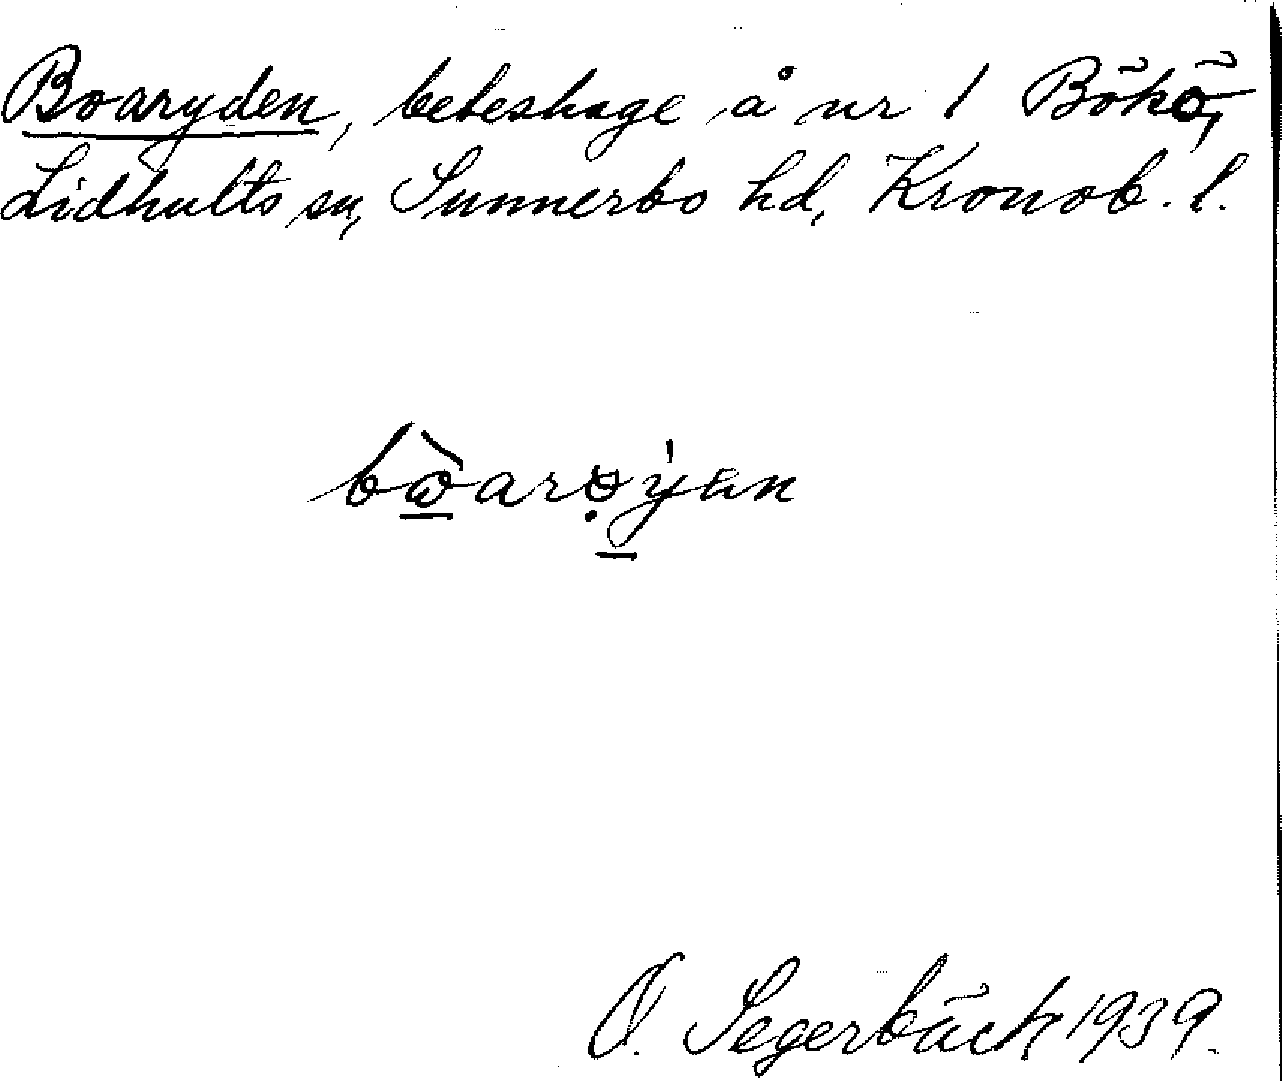 Boaryden, beteshage å nr 1 Bökö,
Lidhults sn, Sunnerbo hd, Kronob. l.
O. Segerbäck 1939.